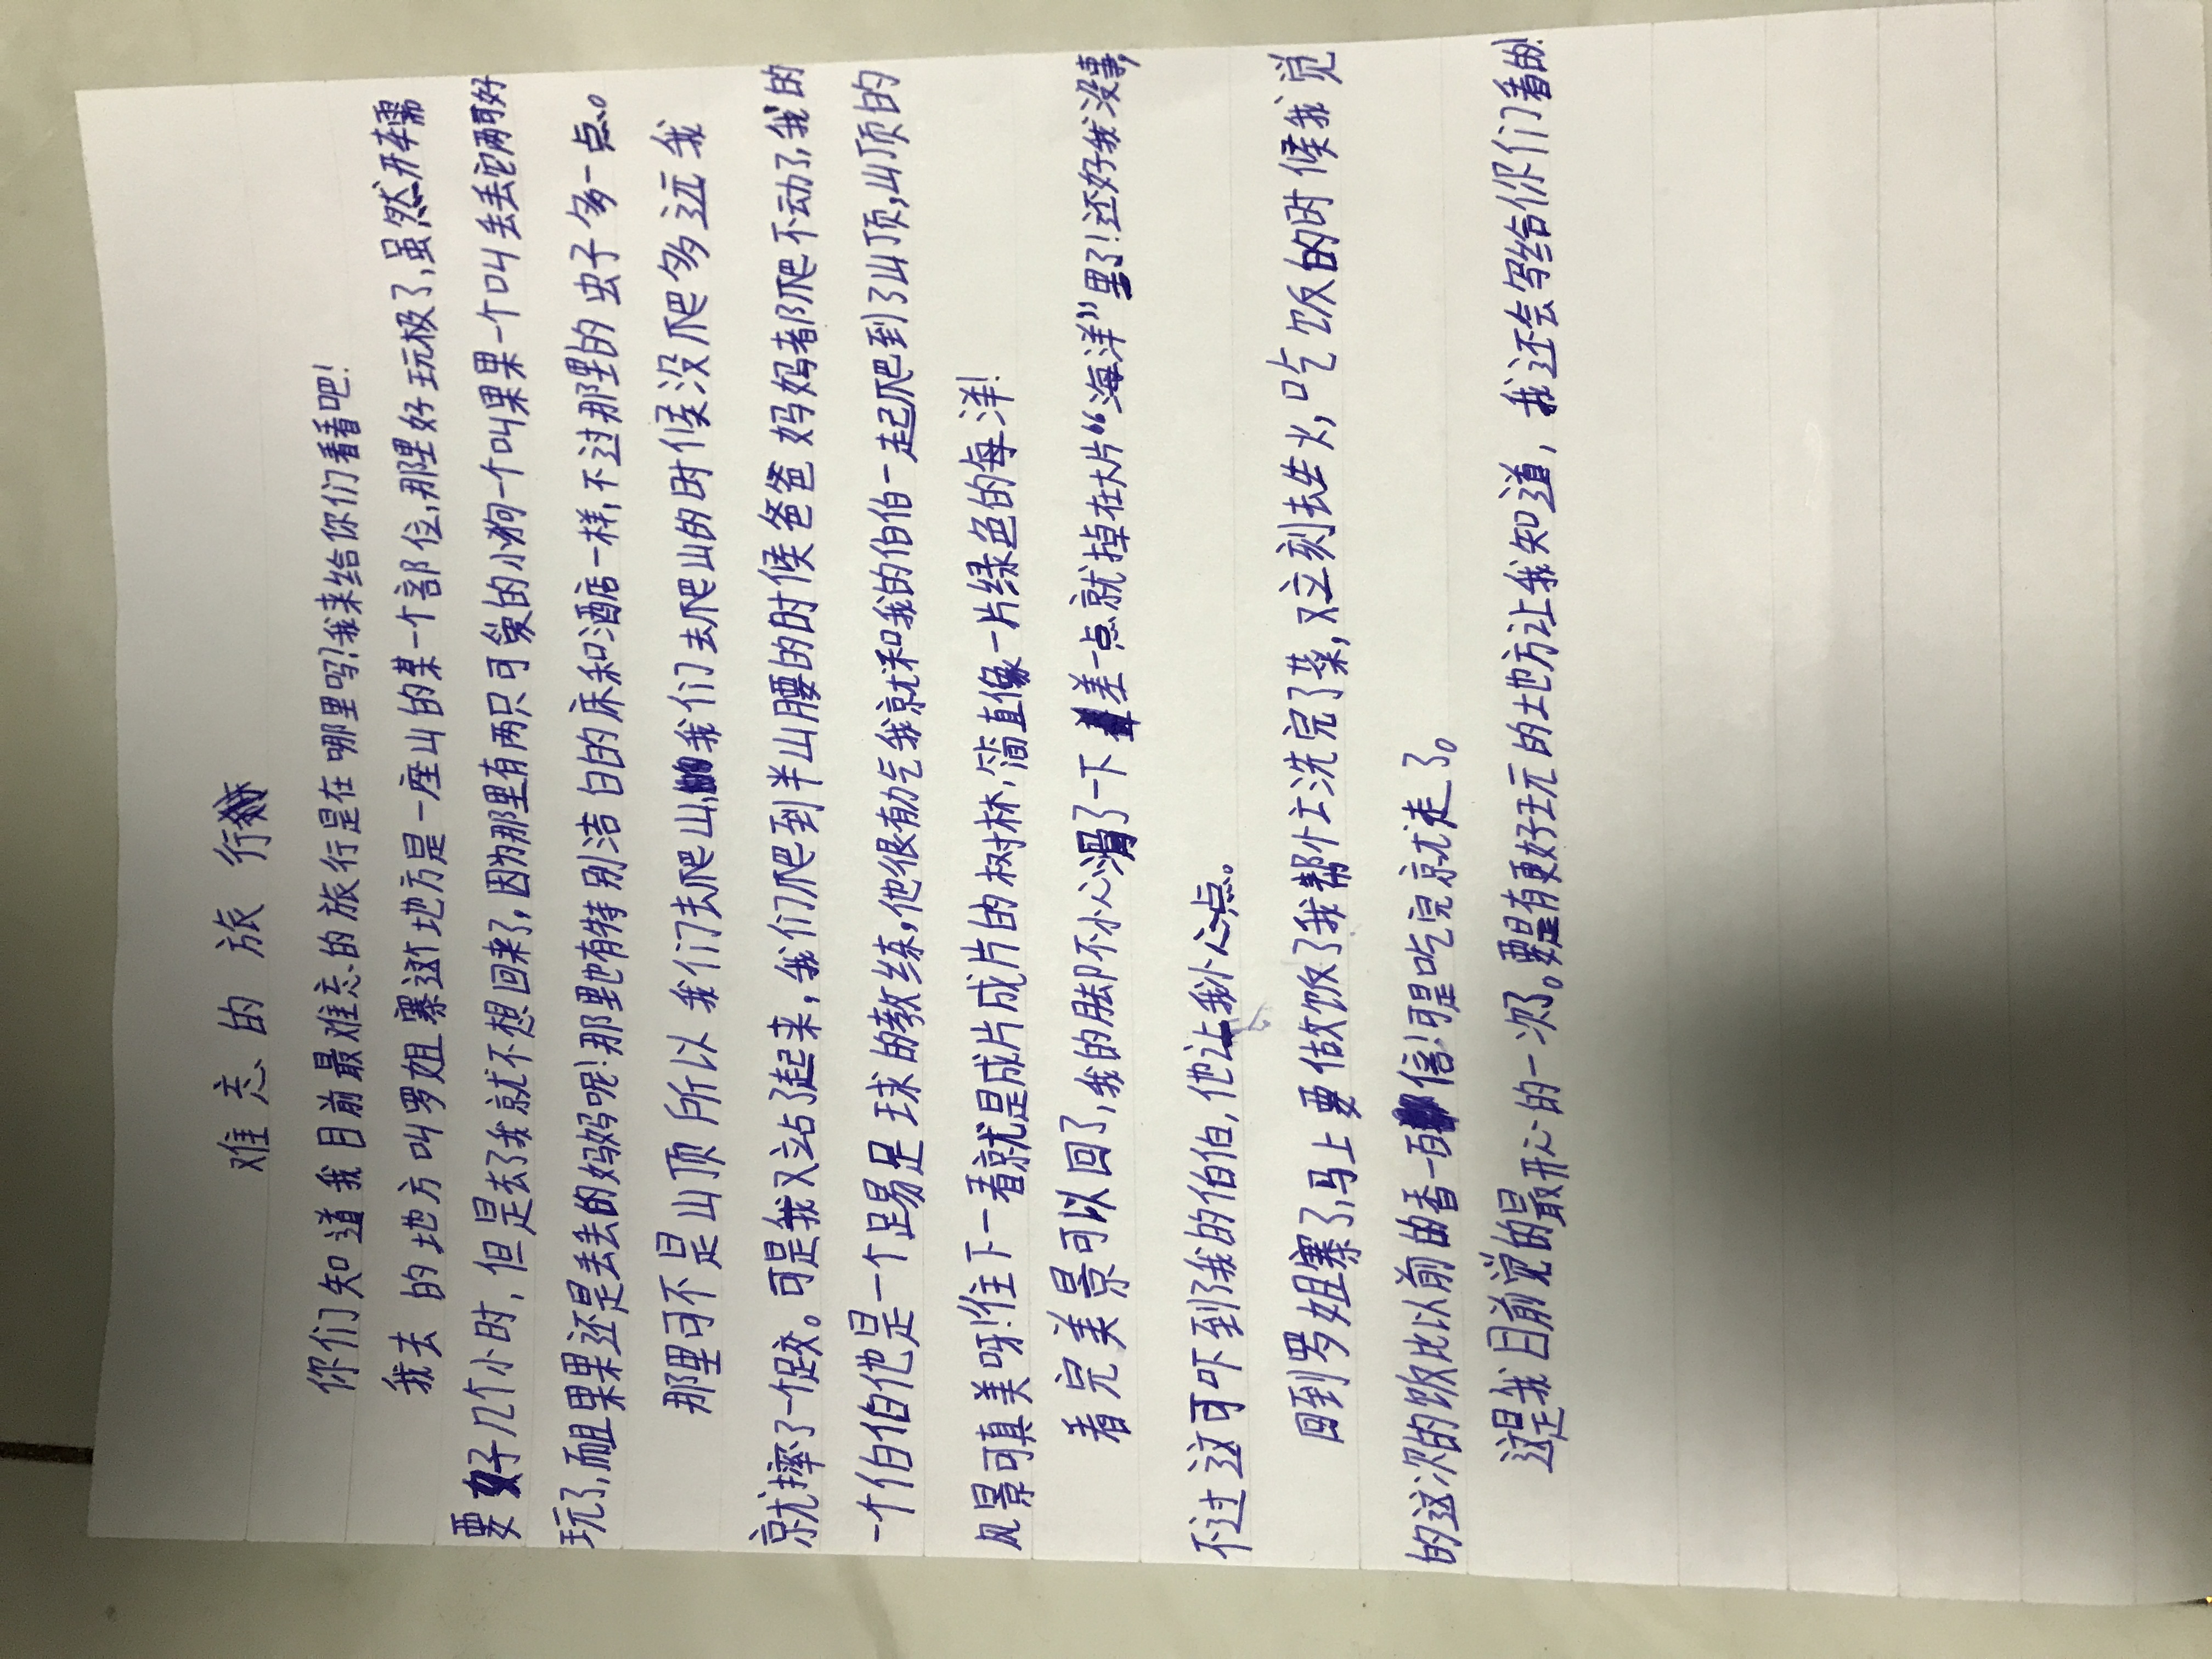 难忘的旅行
你们知道我目前最难忘的旅行是在哪里吗?我来给你们看看吧!
我去的地方叫罗姐寨这个地方是一座山的某一个部位,那里好玩极了,虽然开车需
要好几个小时,但是去了我就不想回来了,因为那里有两只可爱的小狗一个叫果果一个叫丢丢它两可好
玩了,而且果果还是丢丢的妈妈呢!那里也有特别洁白的床和酒店一样,不过那里的虫子多一点。
那里可不是山顶所以我们去爬山,我们去爬山的时候没爬多远我
就摔了一个跤。可是我又站了起来,我们爬到半山腰的时候爸爸妈妈都爬不动了,我的
一个伯伯他是一个踢足球的教练,他很有力气我就和我的伯伯一起爬到了山顶,山顶的
风景可真美呀!往下一看就是成片成片的树林,简直像一片绿色的每洋!
看完美景可以回了,我的脚不小心滑了一下差一点就掉在大片“海洋”里了!还好我没事,
不过这可吓到了我的伯伯,他让我小心点。
回到罗姐寨了,马上要做饭了我帮忙洗完了菜,又立刻去生火,吃饭的时候我觉
的这次的饭比以前的香一百倍!可是吃完就走了。
这是我目前觉的最开心的一次了。要是有更好玩的地方让我知道,我还会写给你们看的!